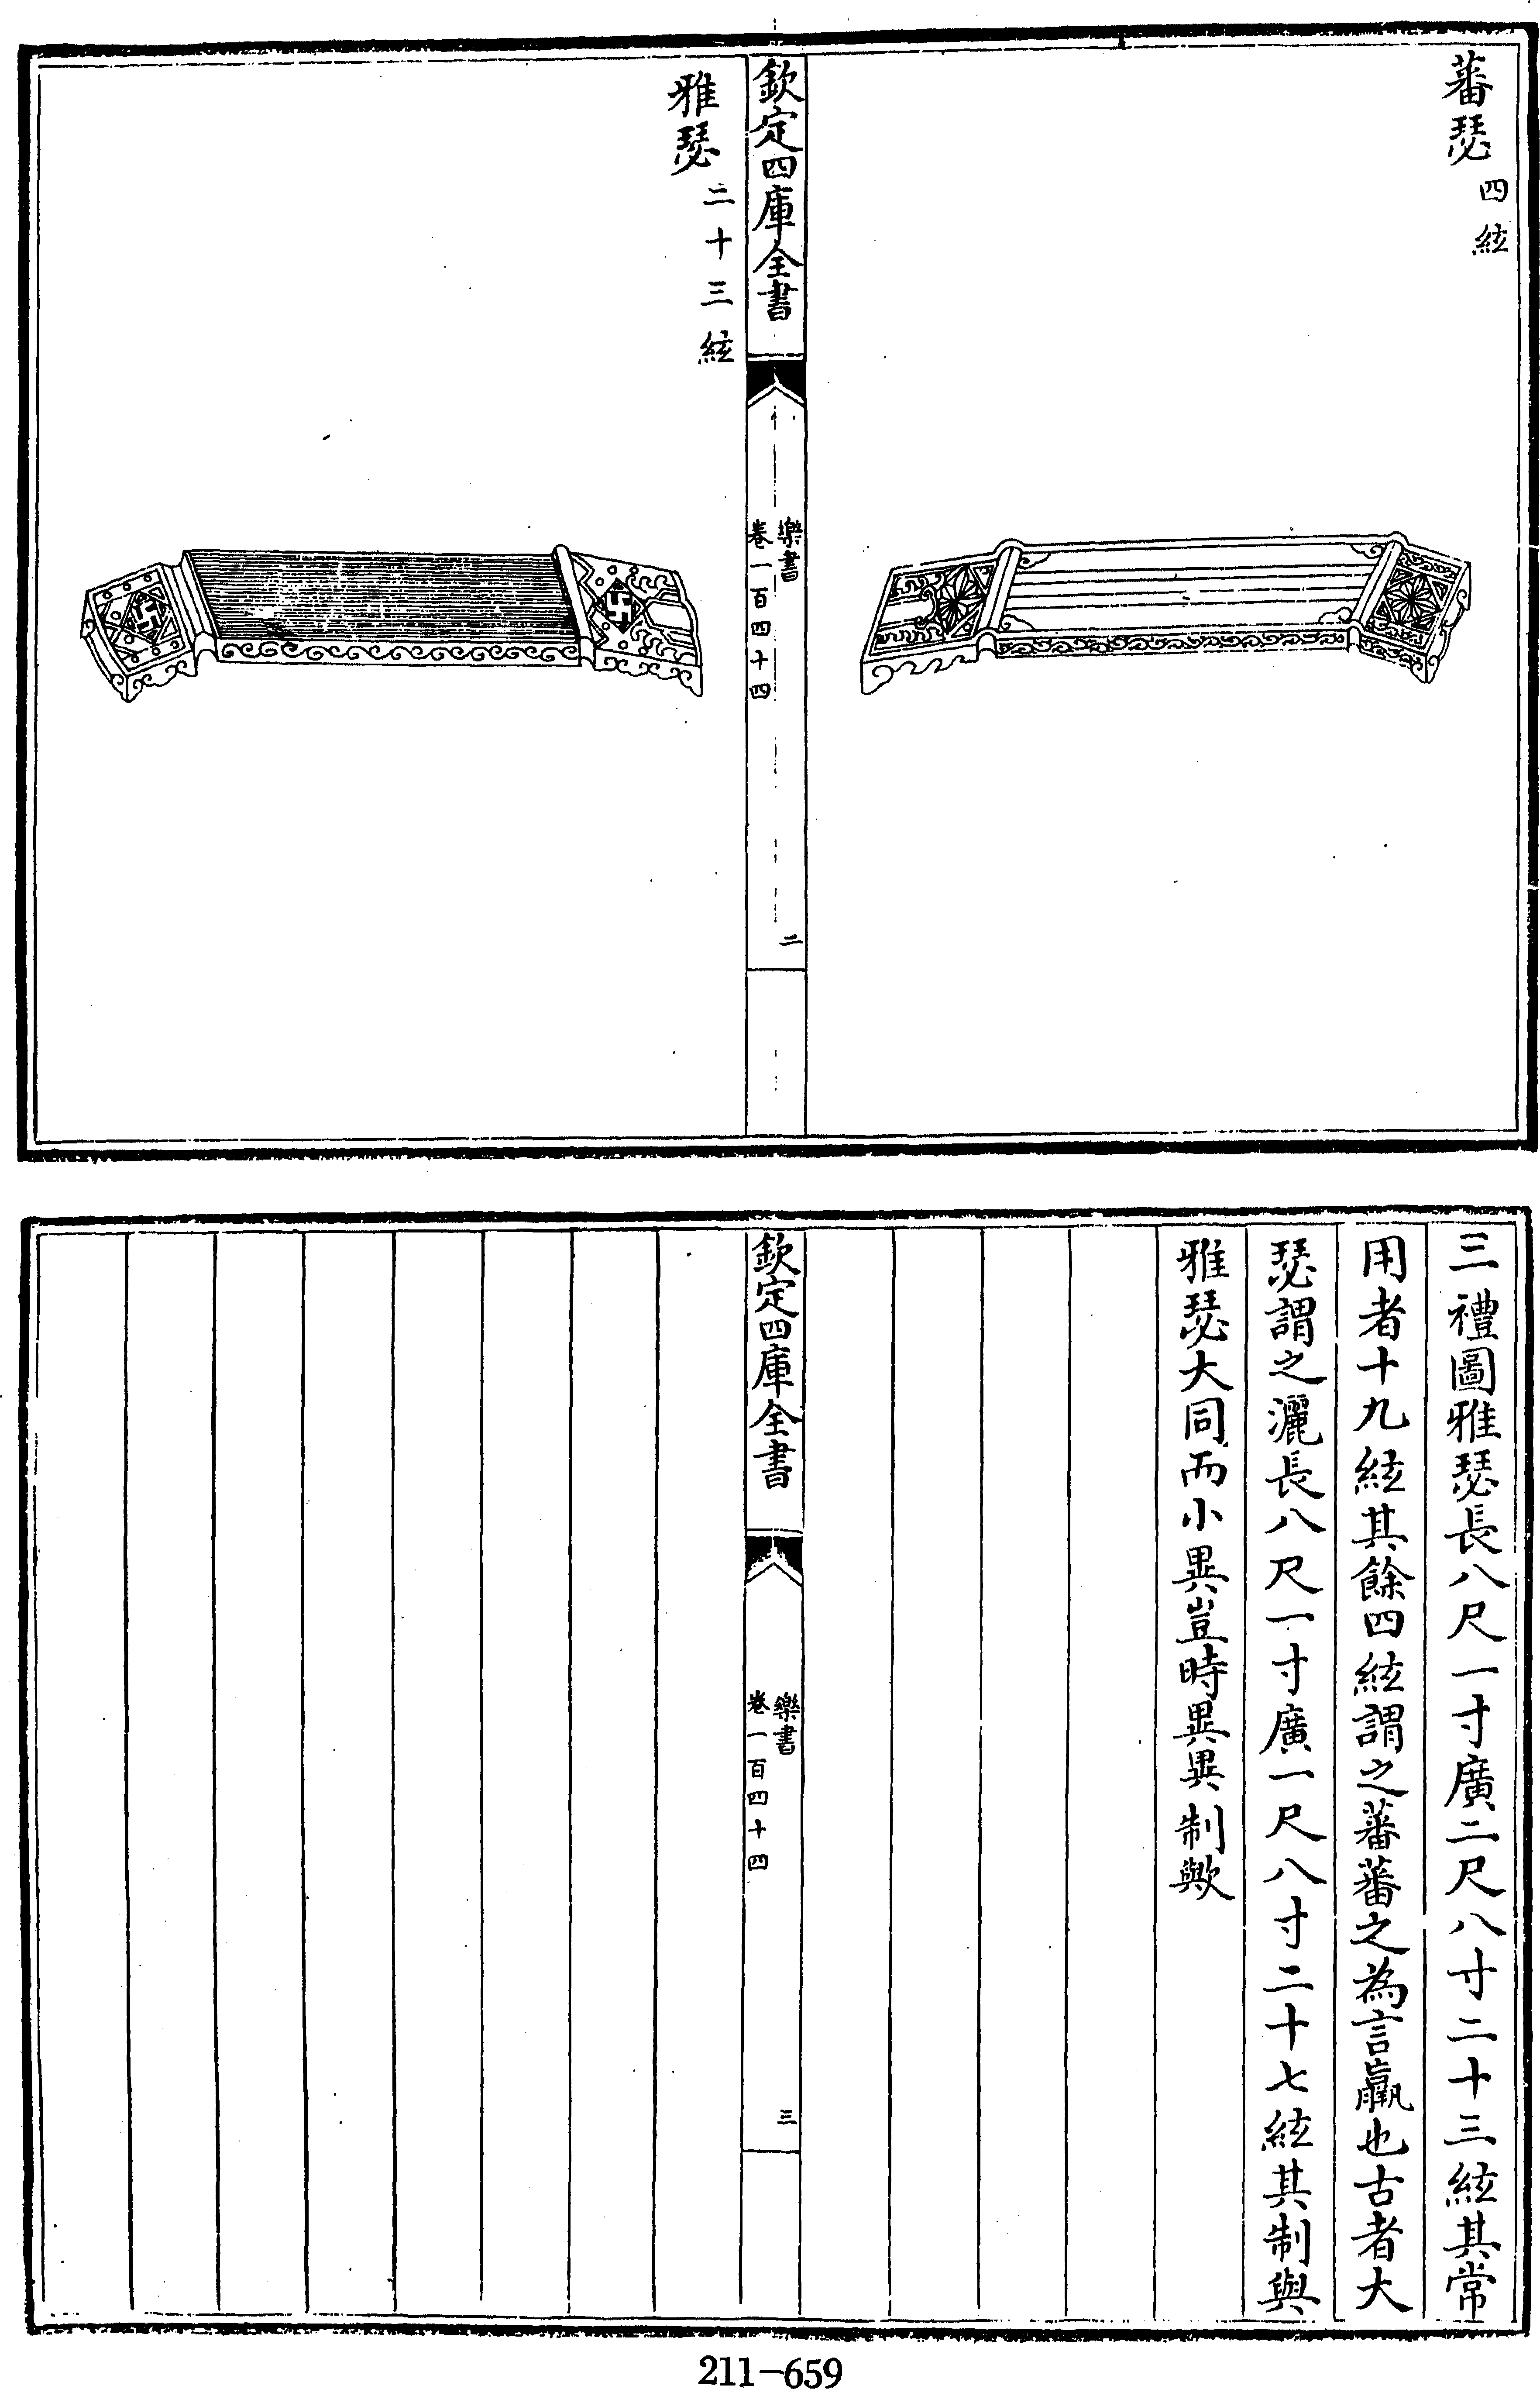 蕃瑟四絃
欽定四庫全書
樂書
卷一百四十四
二
雅瑟二十三絃
三禮圖雅瑟長八尺一寸廣二尺八寸二十三絃其常
用者十九絃其餘四絃謂之蕃蕃之為言贏也古者大
瑟謂之灑長八尺一寸廣一尺八寸二十七絃其制與
雅瑟大同而小異豈時異異制歟
欽定四庫全書
樂書
卷一百四十四
三
211-659